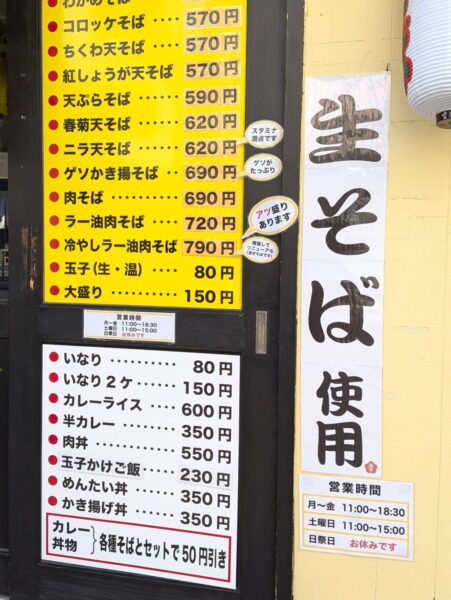 わかめそば
コロッケそば ‥ 570円
ちくわ天そば ‥ 570円
紅しょうが天そば 570円
天ぷらそば ‥‥‥ 590円
春菊天そば ‥‥‥ 620円
スタミナ
満点です
ニラ天そば ‥‥‥ 620円
ゲソかき揚そば ‥ 690円
ゲソが
たっぷり
肉そば ‥‥‥‥ 690円
ラー油肉そば ‥‥ 720円
アツ盛り
あります
冷やしラー油肉そば 790円
増量して
リニューアル
玉子(生・温) ‥ 80円
大盛り ‥‥‥‥ 150円
営業時間
月〜金 11:00〜18:30
土曜日 11:00〜15:00
日祭日 お休みです
いなり ‥‥‥‥‥ 80円
いなり2ケ ‥‥‥ 150円
カレーライス ‥‥ 600円
半カレー ‥‥‥‥ 350円
肉丼 ‥‥‥‥‥ 550円
玉子かけご飯 ‥‥ 230円
めんたい丼 ‥‥‥ 350円
かき揚げ丼 ‥‥‥ 350円
カレー
丼物
各種そばとセットで50円引き
生そば使用
営業時間
月〜金 11:00〜18:30
土曜日 11:00〜15:00
日祭日 お休みです